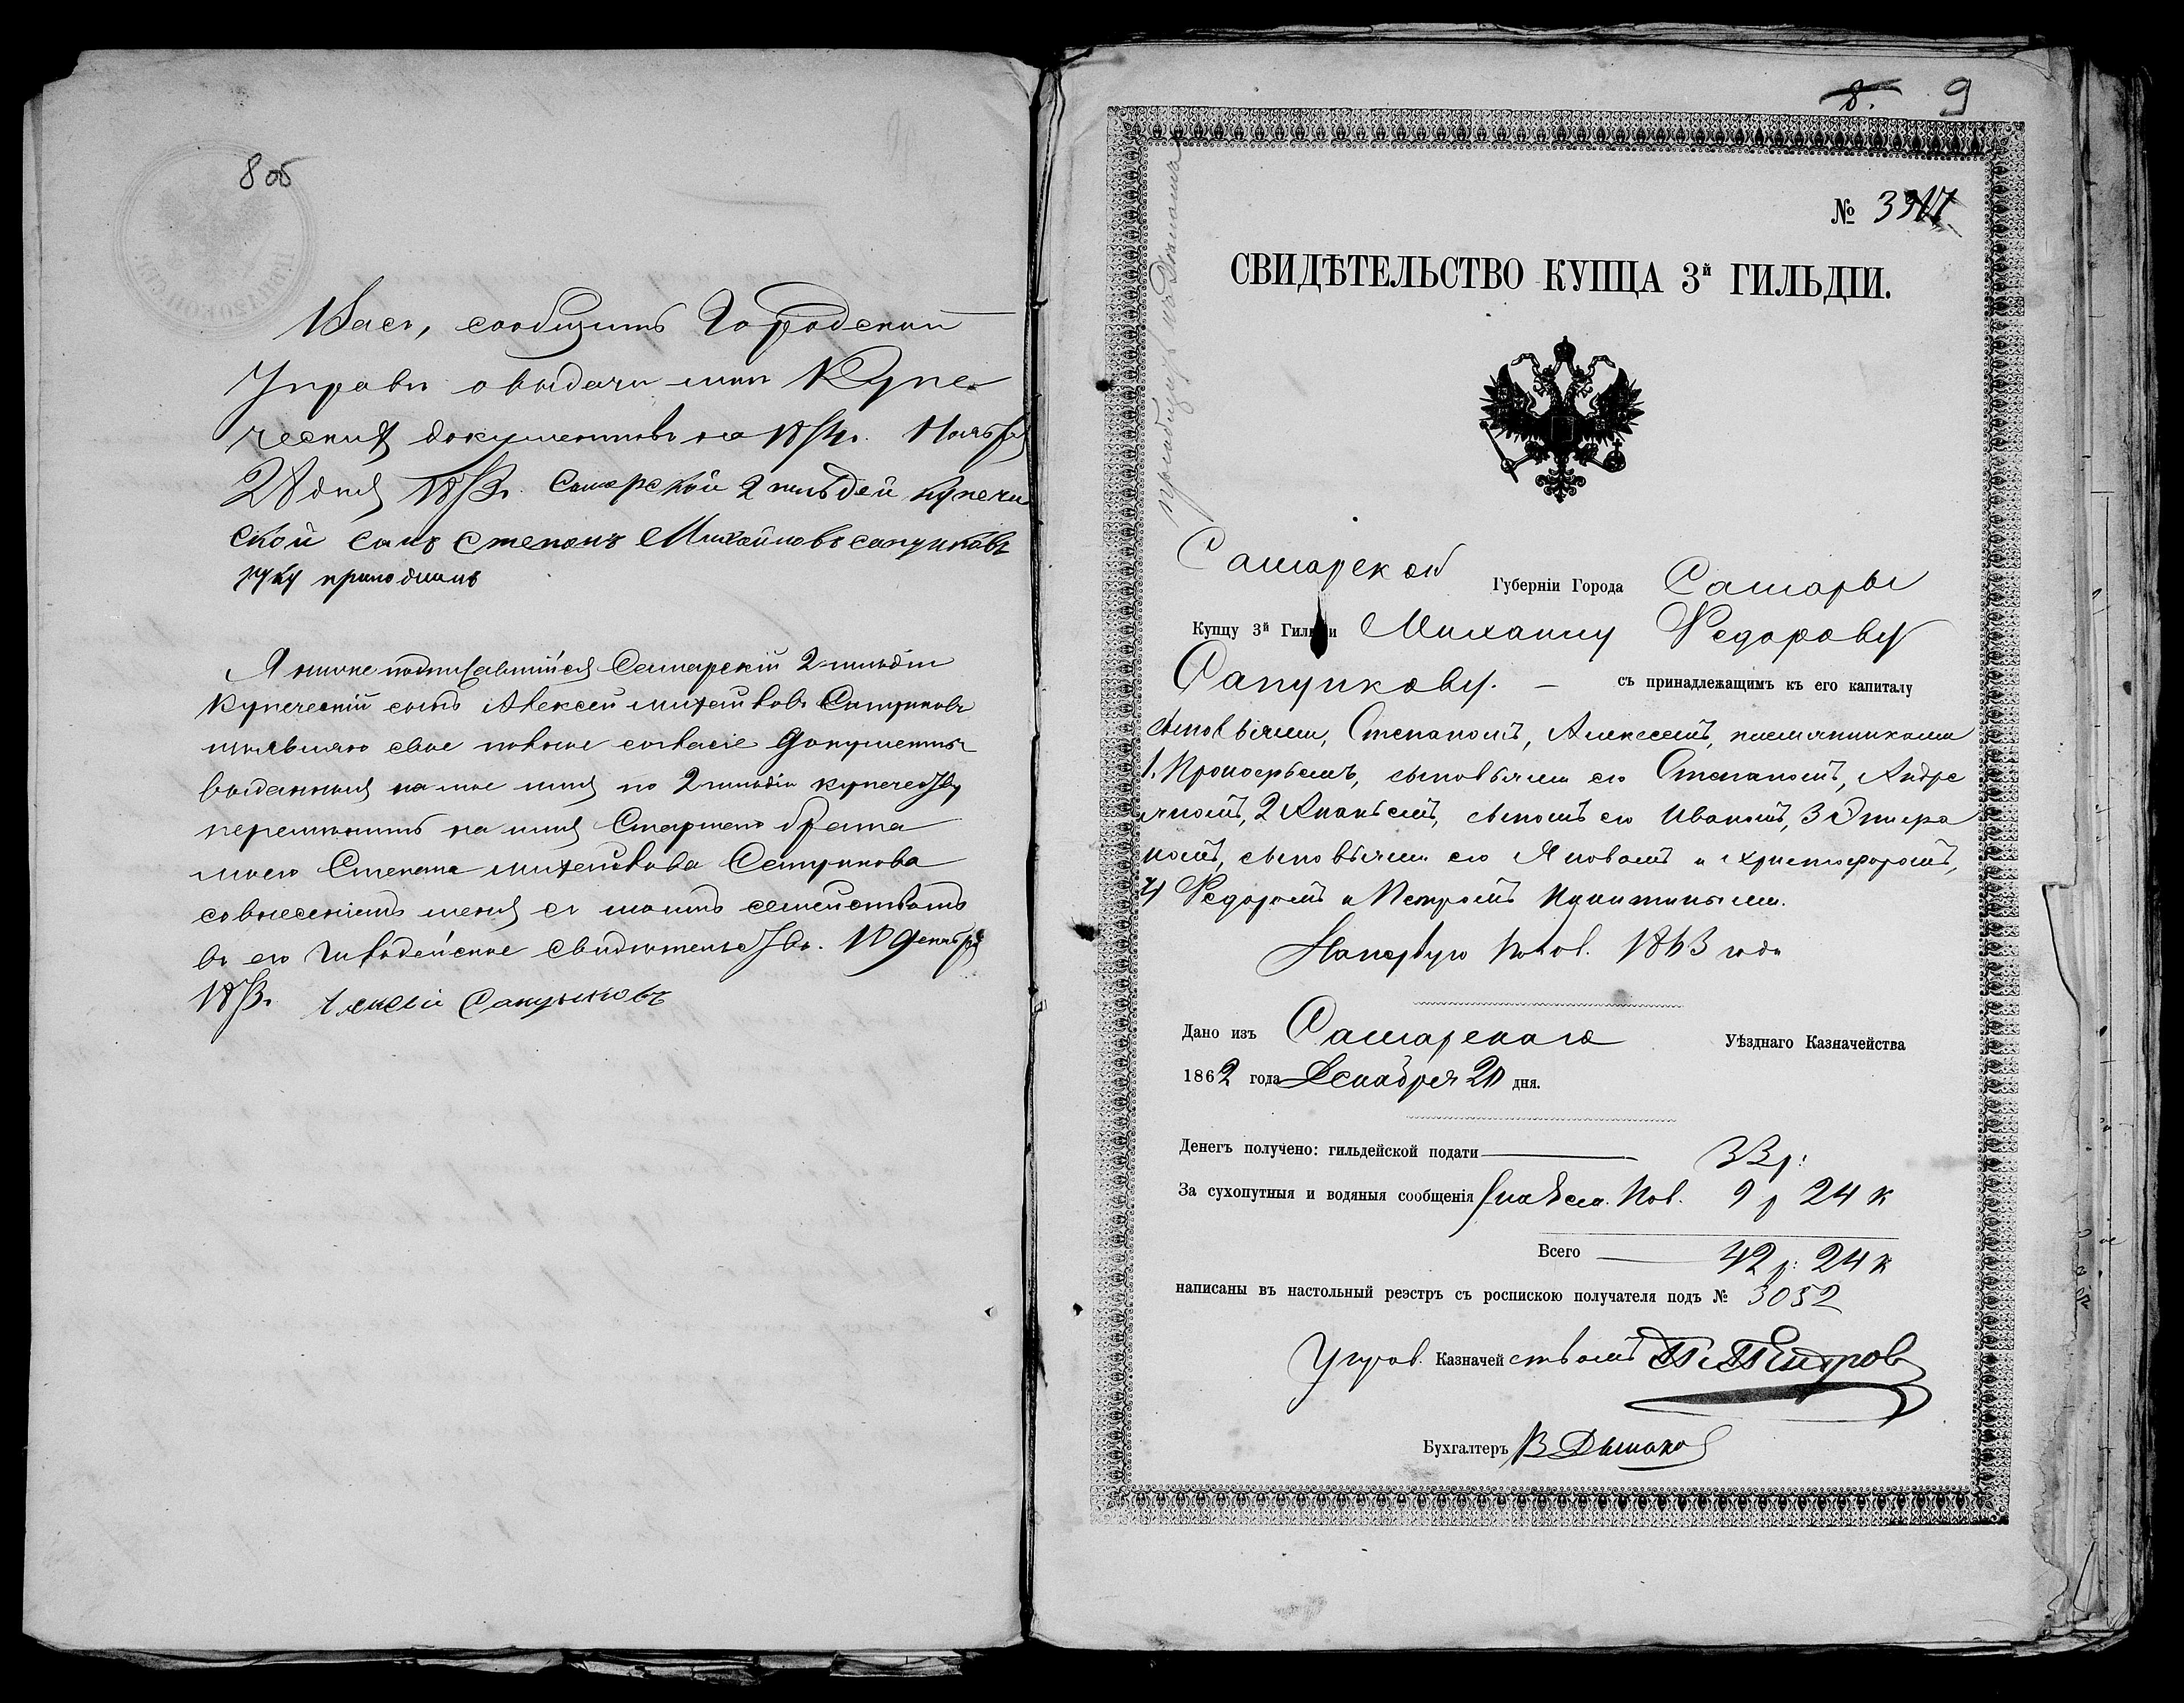 8 об
Васъ, сообщить Городской
Управѣ о выдачи мнѣ Купе-
ческихъ документовъ на 1874 г. Ноября
28 дня 1873 г. Самарской 2 гильдей купече
ской сынъ Степанъ Михайловъ Сапунковъ
руку приложилъ
Я нижеподписавшійся Самарскій 2 гильдіи
купеческій сынъ Алексей Михайловъ Сапунковъ
изъявляю свое полное согласіе документы
выданныя на мое имя по 2 гильдіи купечеству
переменить на имя Старшего брата
моего Степана Михайлова Сапункова
совнесеніемъ меня съ моимъ семействомъ
въ его Гильдейское свидетельство. 10 декабря
1873 г. Алексей Сапунковъ
8. 9
№ 33
СВИДѢТЕЛЬСТВО КУПЦА 3й ГИЛЬДІИ.
Самарской Губерніи Города Самары
Купцу 3й Гильдіи Михаилу Федорову
Сапункову. — съ принадлежащимъ къ его капиталу
сыновьями, Степаномъ, Алексеемъ, племянниками
1. Прокофьемъ, сыновьями его Степаномъ, Андре
яномъ, 2 Ананьемъ, сыномъ его Иваномъ, 3
сыновьями его Яковомъ и Христофоромъ,
4) Федоромъ и Петромъ Никитиными.
На первую полов. 1863 года
Дано изъ Самарскаго Уѣзднаго Казначейства
1862 года Декабря 20 дня.
Денегъ получено: гильдейской подати 33 р:
За сухопутныя и водяныя сообщенія 9 р 24 к
Всего 42 р: 24 к
написаны въ настольный реэстръ съ роспискою получателя подъ № 3052
Управ. Казначействомъ
Бухгалтеръ В